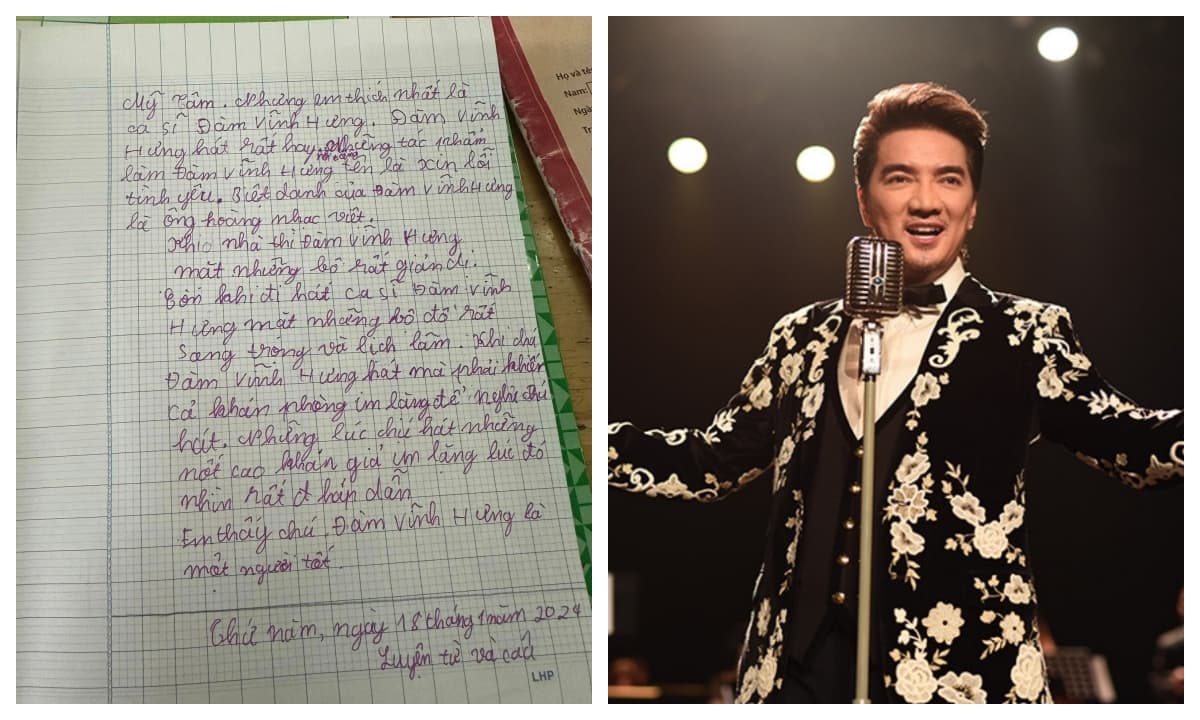 Mỹ Tâm. Nhưng em thích nhất là
ca sĩ Đàm Vĩnh Hưng. Đàm Vĩnh
Hưng hát rất hay. Những tác phẩm
nổi tiếng
làm Đàm Vĩnh Hưng tên là xin lỗi
tình yêu. Biệt danh của Đàm Vĩnh Hưng
là ông hoàng nhạc việt.
Khio nhà thì Đàm Vĩnh Hưng
mặt những bô rất giản dị.
Còn khi đi hát ca sĩ Đàm Vĩnh
Hưng mặt những bô đồ rất
sang trong và lich lãm. Khi chú
Đàm Vĩnh Hưng hát mà phải khiến
cả khán phòng im lăng để nghe chú
hát. Những lúc chú hát những
nốt cao khán giả im lăng lúc đó
nhìn rất đ hấp dẫn
Em thấy chú Đàm Vĩnh Hưng là
một người tốt.
Thứ năm, ngày 18 tháng 1 năm 2024
Luyện từ và câu
LHP
Họ và tê
Nam:
Ngà
Tr